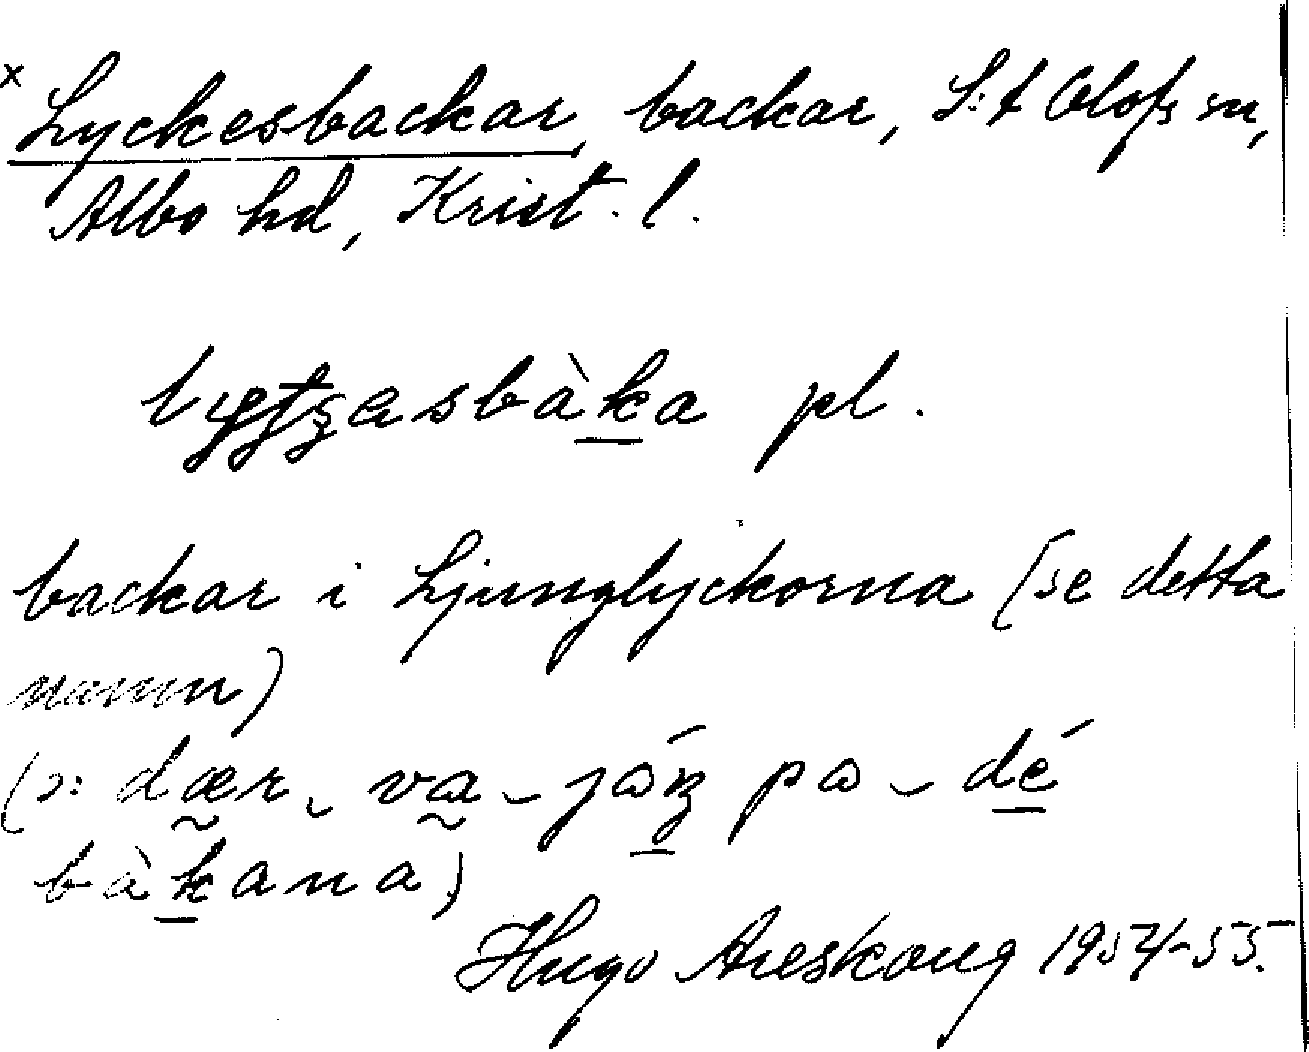 x Lyckesbackar, backar, S:t Olofs sn,
Albo hd, Krist. l.
pl.
backar i Ljunglyckorna (se detta
namn)
(ɔ: dær va pa dé
bàkana)
Hugo Areskoug 1954-55.